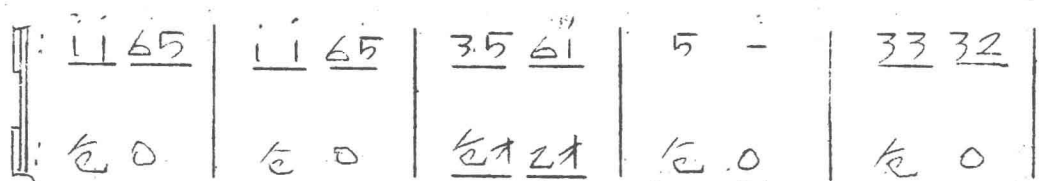 ‖: i̇ i̇ 6 5 | i̇ i̇ 6 5 | 3.5 6 i̇ | 5 - | 3 3 3 2 |
‖: 仓 0 | 仓 0 | 仓才 乙才 | 仓 0 | 仓 0 |